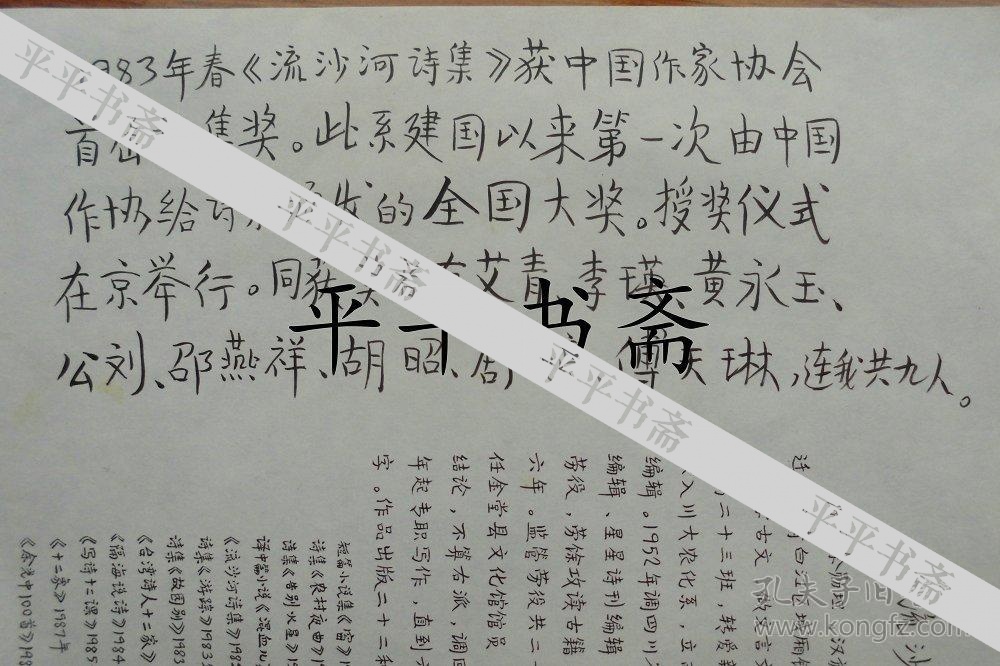 983年春《流沙河诗集》获中国作家协会
首 集奖。此系建国以来第一次由中国
作协给 的全国大奖。授奖仪式
在京举行。同获 艾青、李瑛、黄永玉、
公刘、邵燕祥、胡昭、 傅天琳,连我共九人。
平 书斋
平平书斋
平平书斋
平平书斋
平平书斋
孔夫子旧书网
www.kongfz.com
古文 文言文
二十三班,转
入川大农化系,立
编辑。1952年调四川
编辑、星星诗刊编辑
劳役,劳馀攻读古籍
六年。监管劳役共二十
任金堂县文化馆馆员
结论,不算右派,调回
年起专职写作,直到
字。作品出版二十三种
短篇小说集《窗》19
诗集《农村夜曲》19
诗集《告别火星》19
译中篇小说《混血儿
《流沙河诗集》198
诗集《游踪》1983
诗集《故园别》1983
《台湾诗人十二家》
《隔海说诗》1984
《写诗十二课》1985
《十二象》1987年
《余光中100首》198